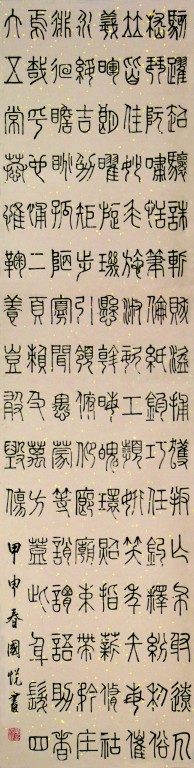 駭躍超驤誅斬賊盜捕獲叛亡布射遼丸
嵇琴阮嘯恬筆倫紙鈞巧任釣釋紛利俗
並皆佳妙毛施淑姿工顰妍笑年矢每催
曦暉朗曜璇璣懸斡晦魄環照指薪修祜
永綏吉劭矩步引領俯仰廊廟束帶矜莊
徘徊瞻眺孤陋寡聞愚蒙等誚謂語助者
焉哉乎也二頁賴及萬方蓋此身髮四
大五常恭惟鞠養豈敢毀傷
甲申春國悅書